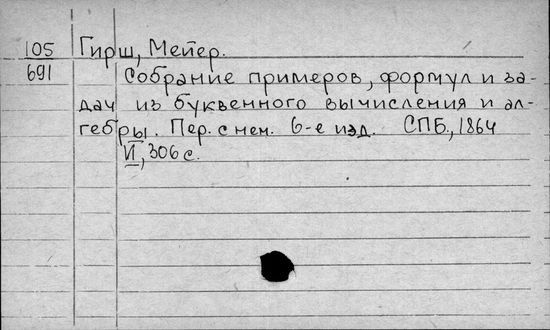 105 Гирш, Мейер.
691 Собрание примеров, формул и за-
дач из буквенного вычисления и ал-
гебры. Пер. с нем. 6-е изд. СПБ., 1864
VI, 306 с.